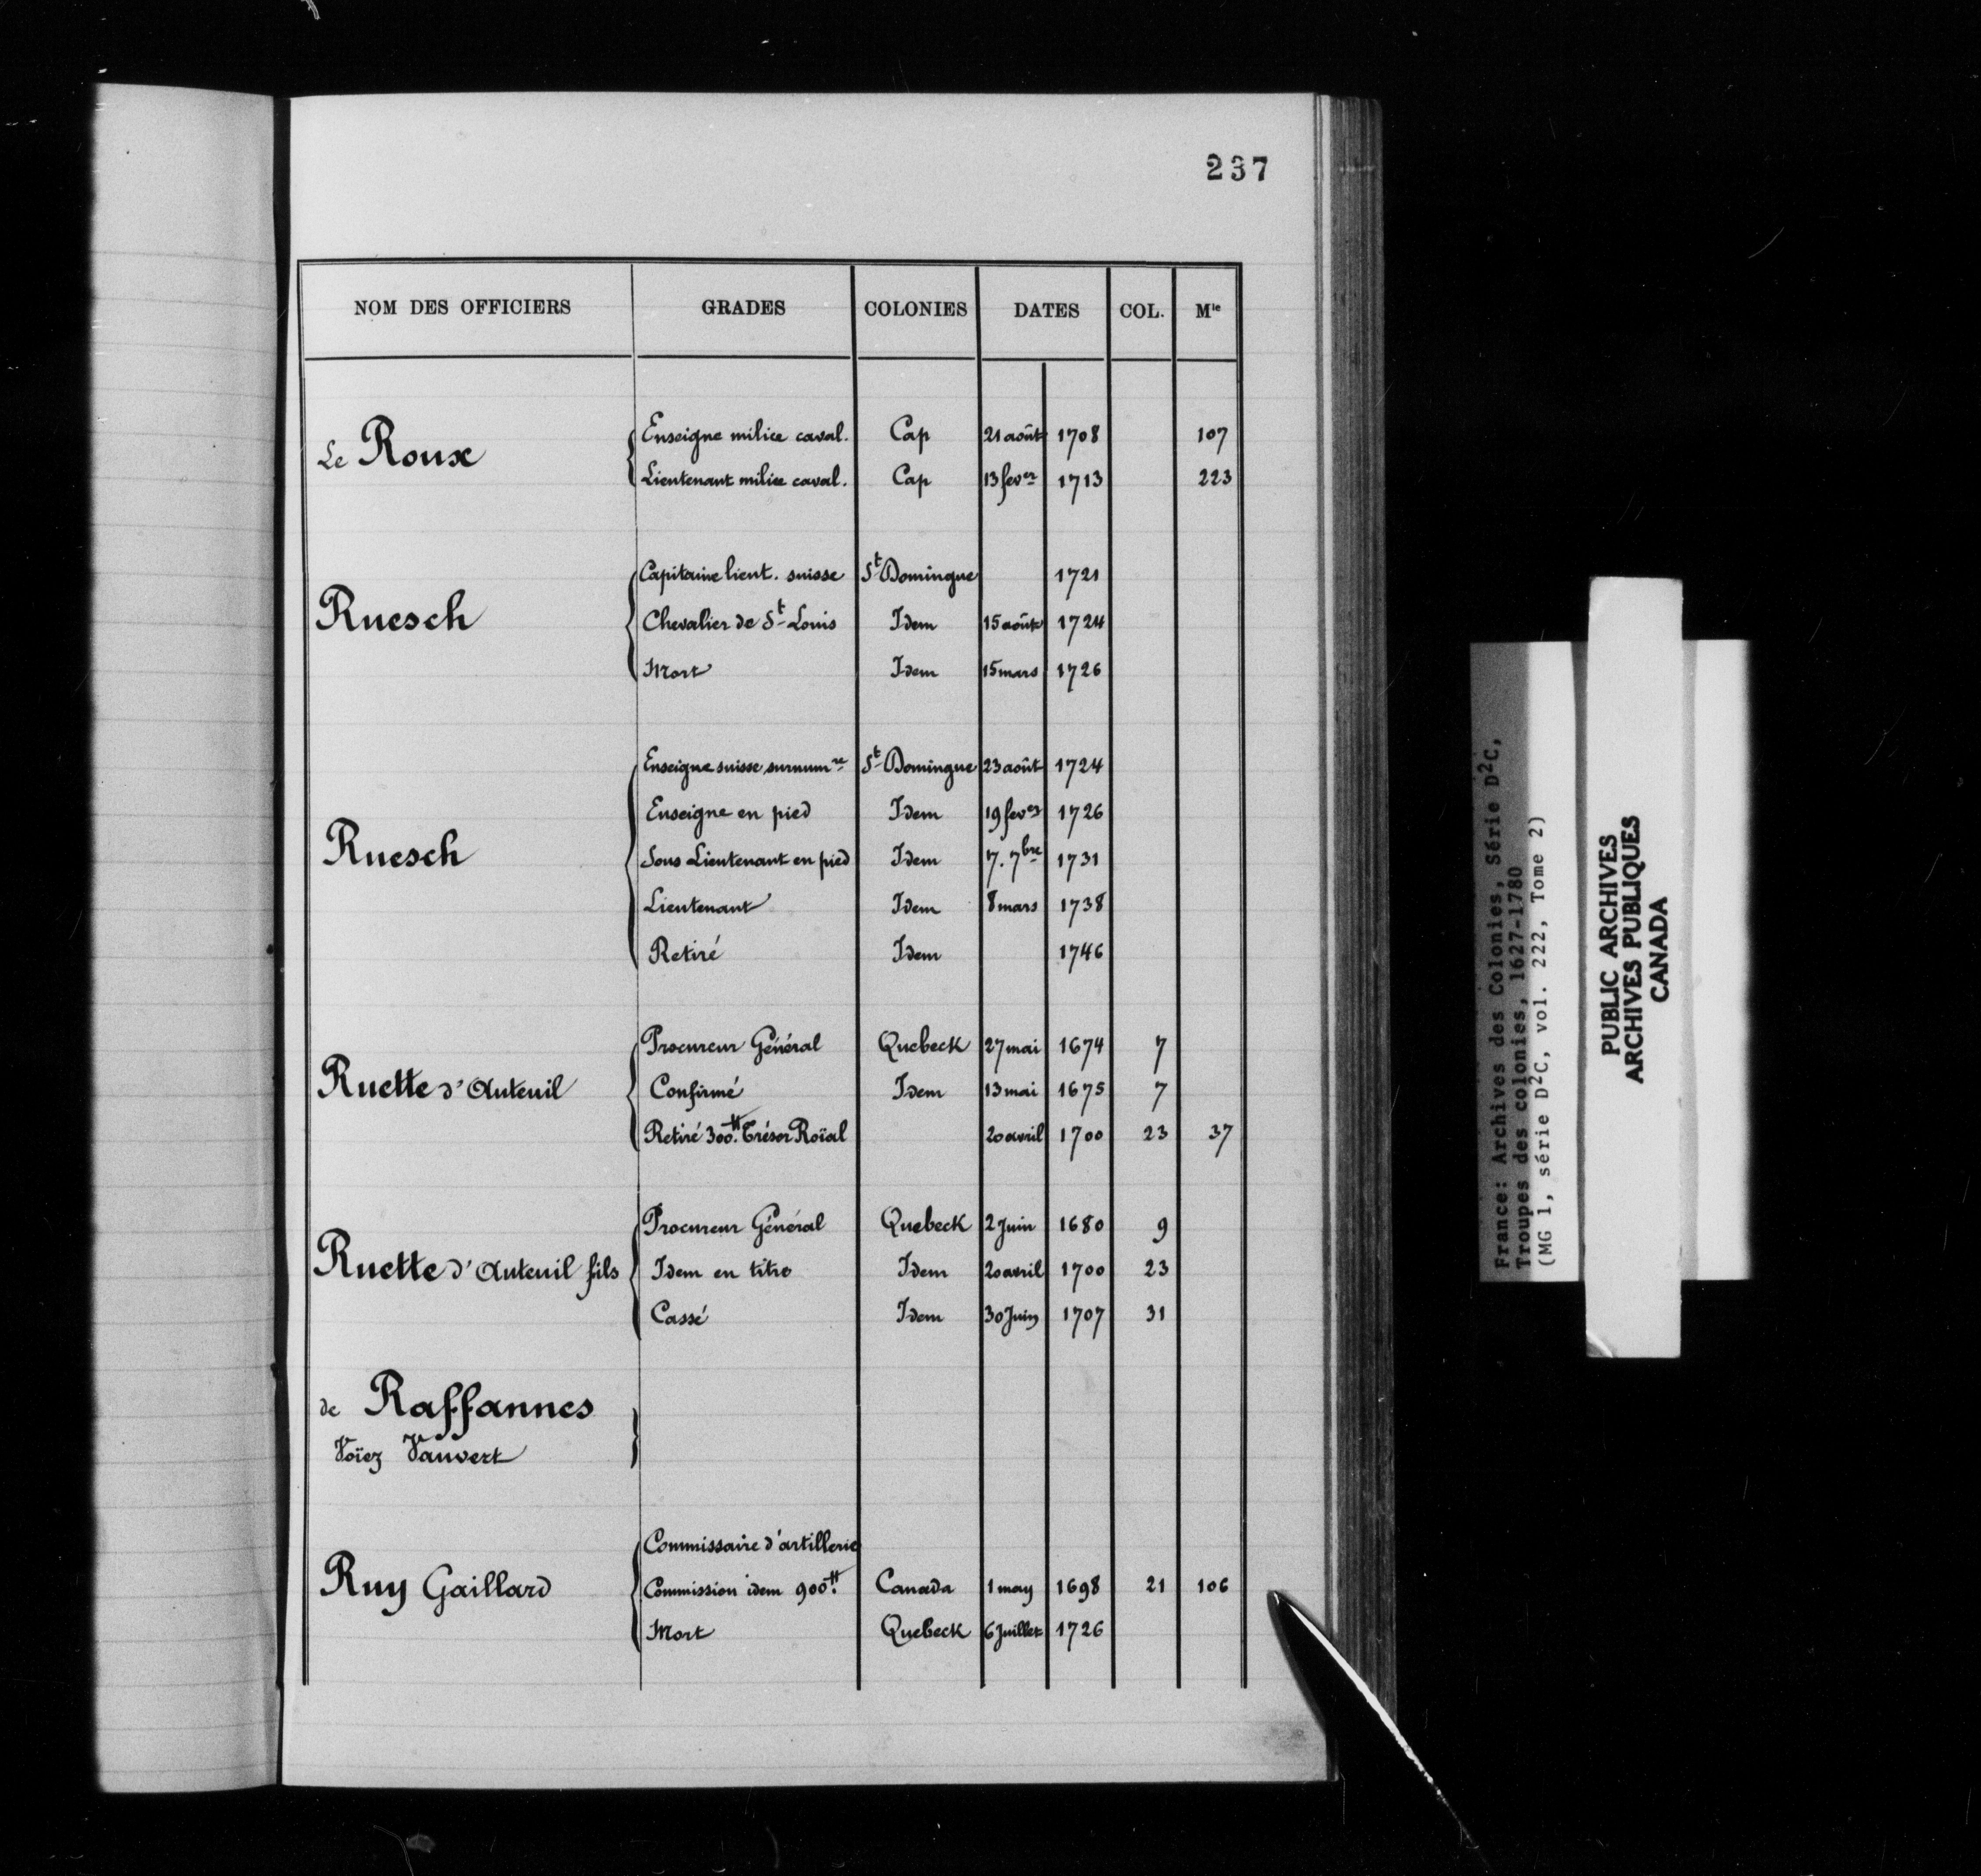 237
NOM DES OFFICIERS GRADES COLONIES DATES COL. Mle
Le Roux
Enseigne milice caval. Cap 21 août 1708 107
Lieutenant milice caval. Cap 13 fever 1713 223
Ruesch
Capitaine lieut. suisse St Domingue 1721
Chevalier de St Louis Idem 15 août 1724
Mort Idem 15 mars 1726
Ruesch
Enseigne suisse surnumre St Domingue 23 août 1724
Enseigne en pied Idem 19 fever 1726
Sous Lieutenant en pied Idem 7. 7bre 1731
Lieutenant Idem 8 mars 1738
Retiré Idem 1746
Ruette d'Auteuil
Procureur Général Quebeck 27 mai 1674 7
Confirmé Idem 13 mai 1675 7
Retiré 300.tt Trésor Roïal 20 avril 1700 23 37
Ruette d'Auteuil fils
Procureur Général Quebeck 2 Juin 1680 9
Idem en titre Idem 20 avril 1700 23
Cassé Idem 30 Juin 1707 31
de Raffannes
Voïez Vauvert
Ruy Gaillard
Commissaire d'artillerie
Commission idem 900.tt Canada 1 may 1698 21 106
Mort Quebeck 6 Juillet 1726
France: Archives des Colonies, Série D2C,
Troupes des colonies, 1627-1780
(MG 1, série D2C, vol. 222, Tome 2)
PUBLIC ARCHIVES
ARCHIVES PUBLIQUES
CANADA